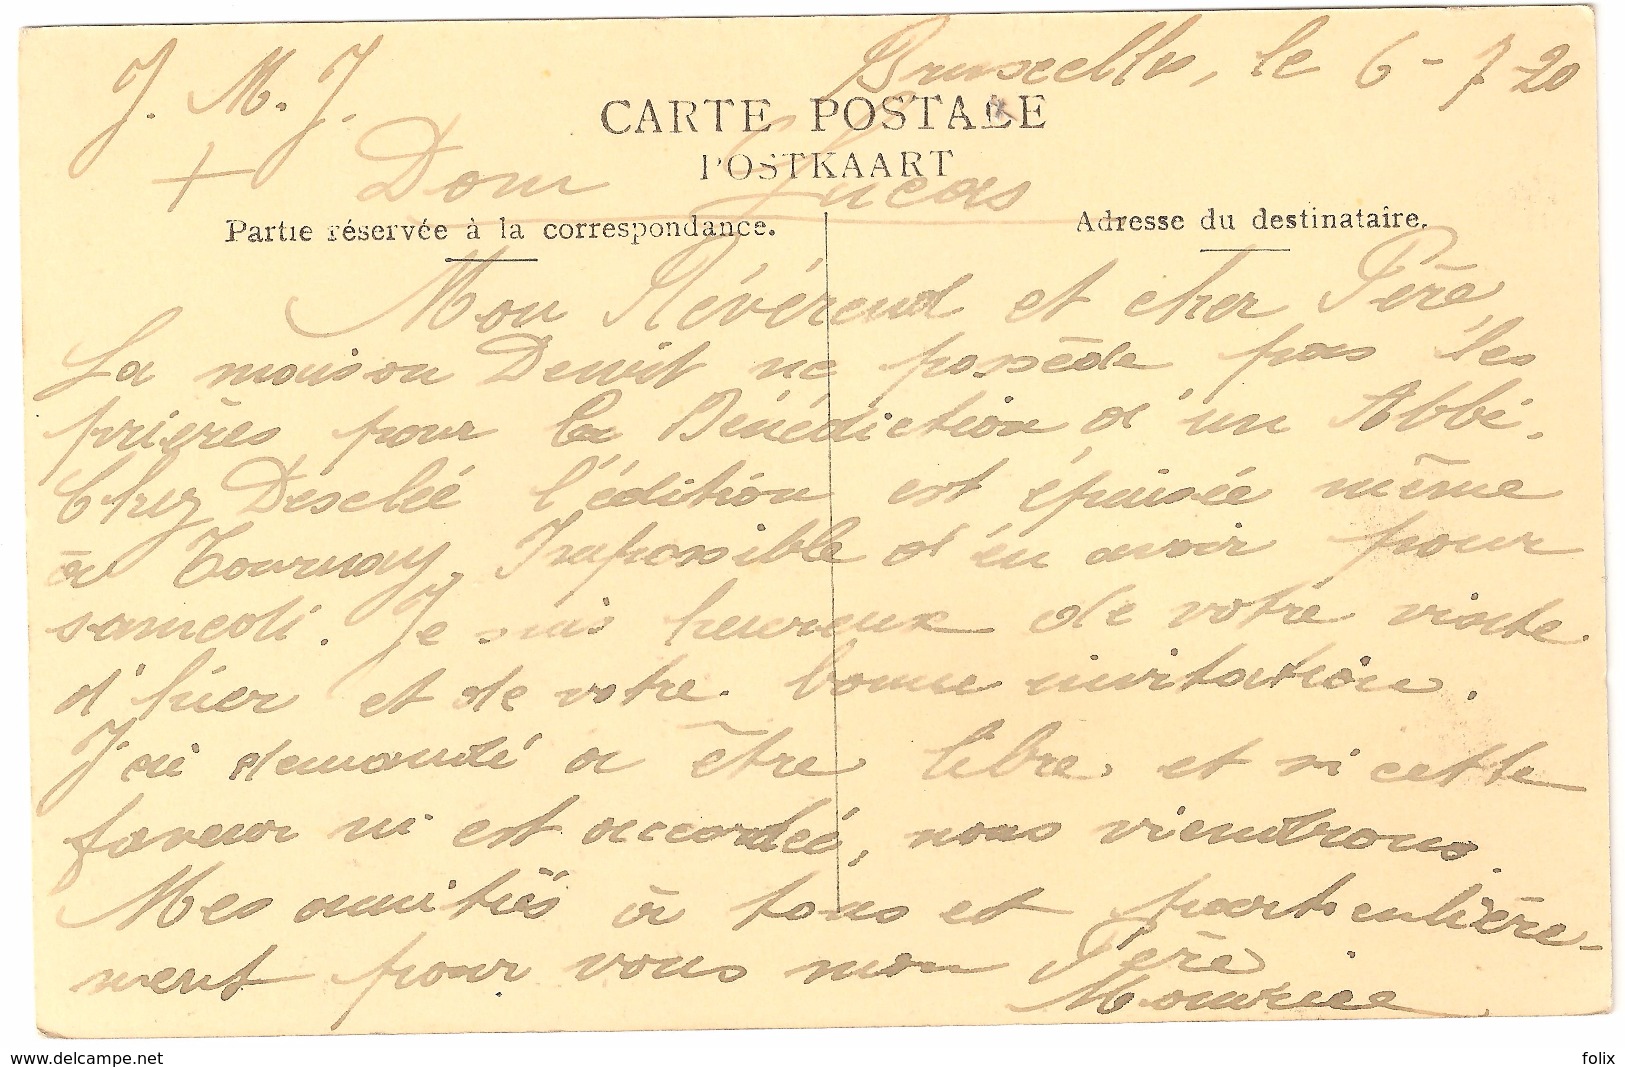 Bruxelles, le 6-7-20
J. M. J.
CARTE POSTALE
POSTKAART
+ Dom Lucas
Partie réservée à la correspondance.
Adresse du destinataire.
Mon Révérend et cher Père,
La maison Dewit ne possède pas les
prières pour la Bénédiction d'un Abbé.
Chez Desclée l'édition est épuisée même
à Tournay. Impossible d'en avoir pour
samedi. Je suis heureux de votre visite
d'hier et de votre bonne invitation.
J'ai demandé à être libre, et si cette
faveur m'est accordée, nous viendrons.
Mes amitiés à tous et particulière-
ment pour vous mon Père
Maurice
www.delcampe.net
folix